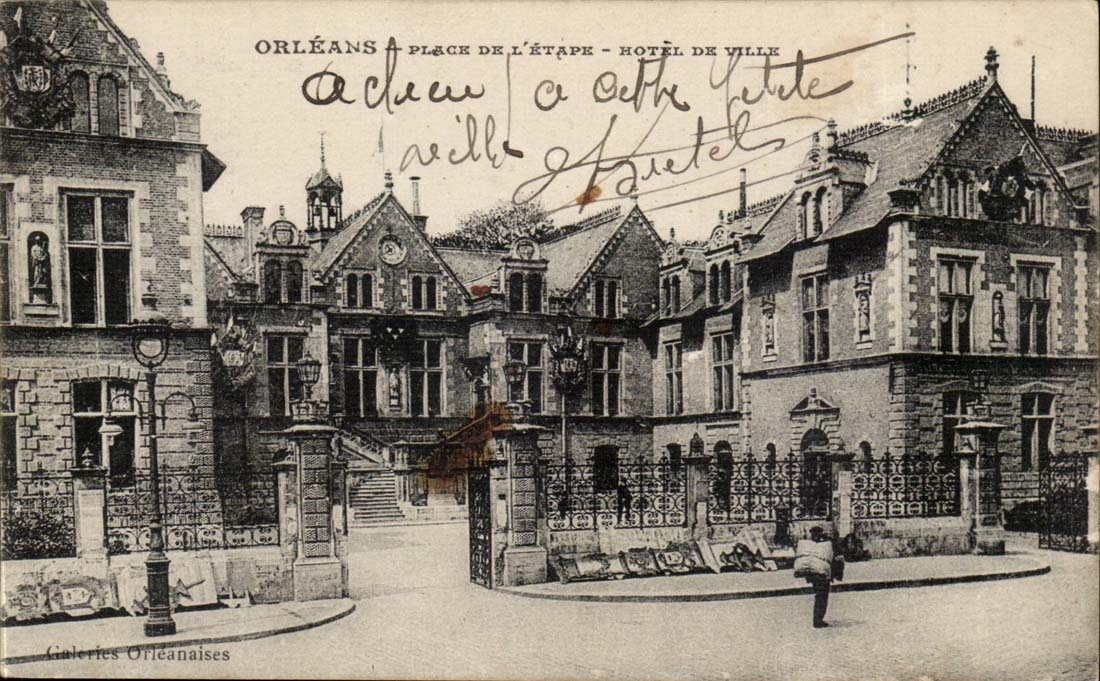 ORLÉANS - PLACE DE L'ÉTAPE - HOTEL DE VILLE
adieu a cette petite
ville
Galeries Orléanaises